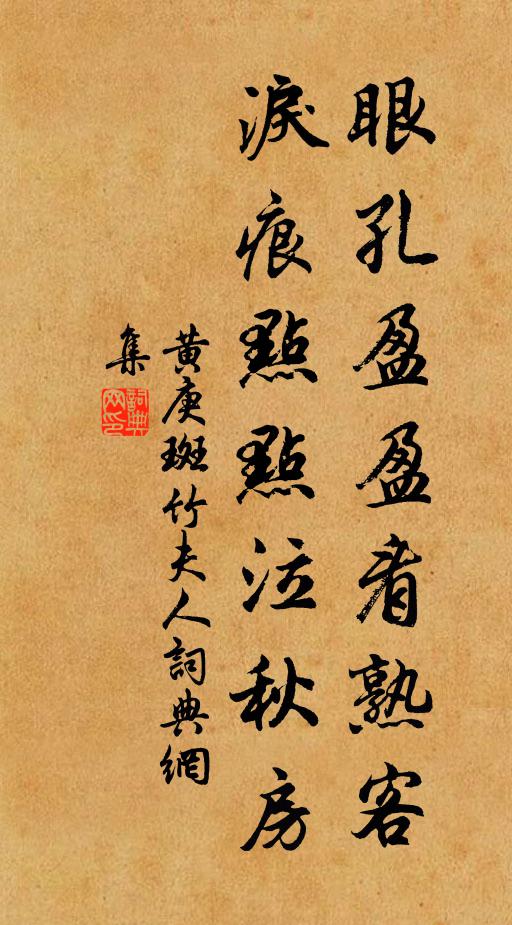 眼孔盈盈看熟客
淚痕點點泣秋房
黃庚斑竹夫人詞典網
集
詞典網印